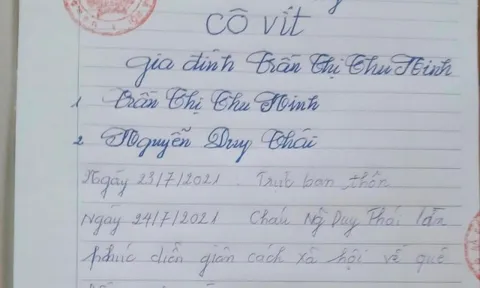 CÔ VÍT
Gia đình Trần Thị Thu Minh
1 Trần Thị Thu Minh
2 Nguyễn Duy Thái
Ngày 23/7/2021 . Trưc ban thôn
Ngày 24/7/2021 Cháu Ng̃ Duy Thái
phúc diễn giãn cách xã hội về quê